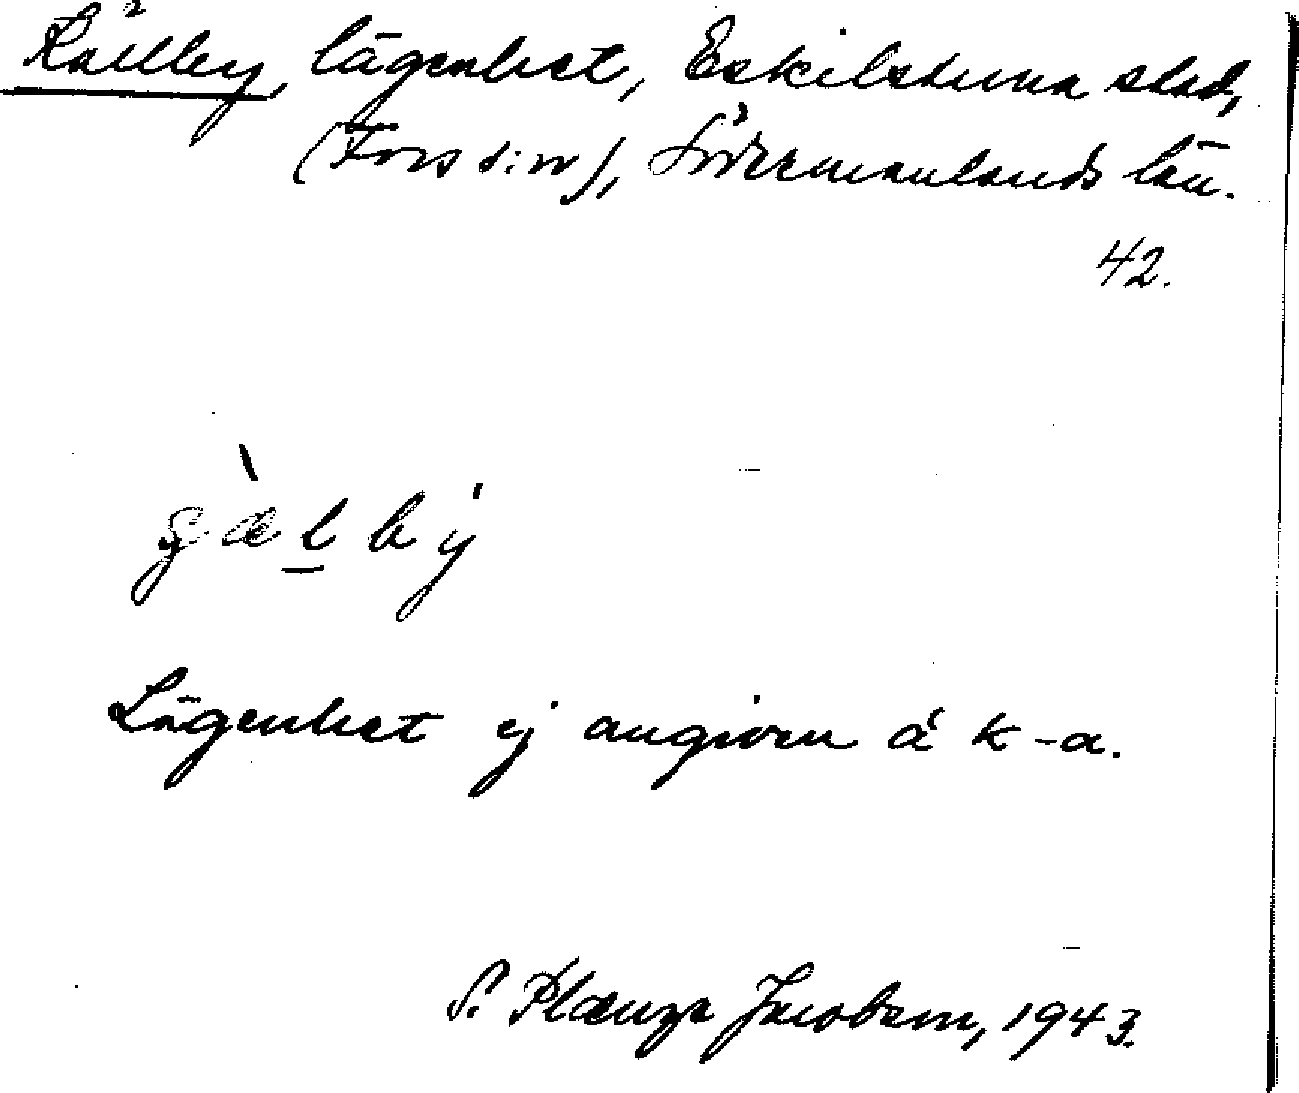 Källby, lägenhet, Eskilstuna stad,
(Fors s:n), Södermanlands län.
42.
Lägenhet ej angiven å k-a.
S. Plænge Jacobson, 1943.